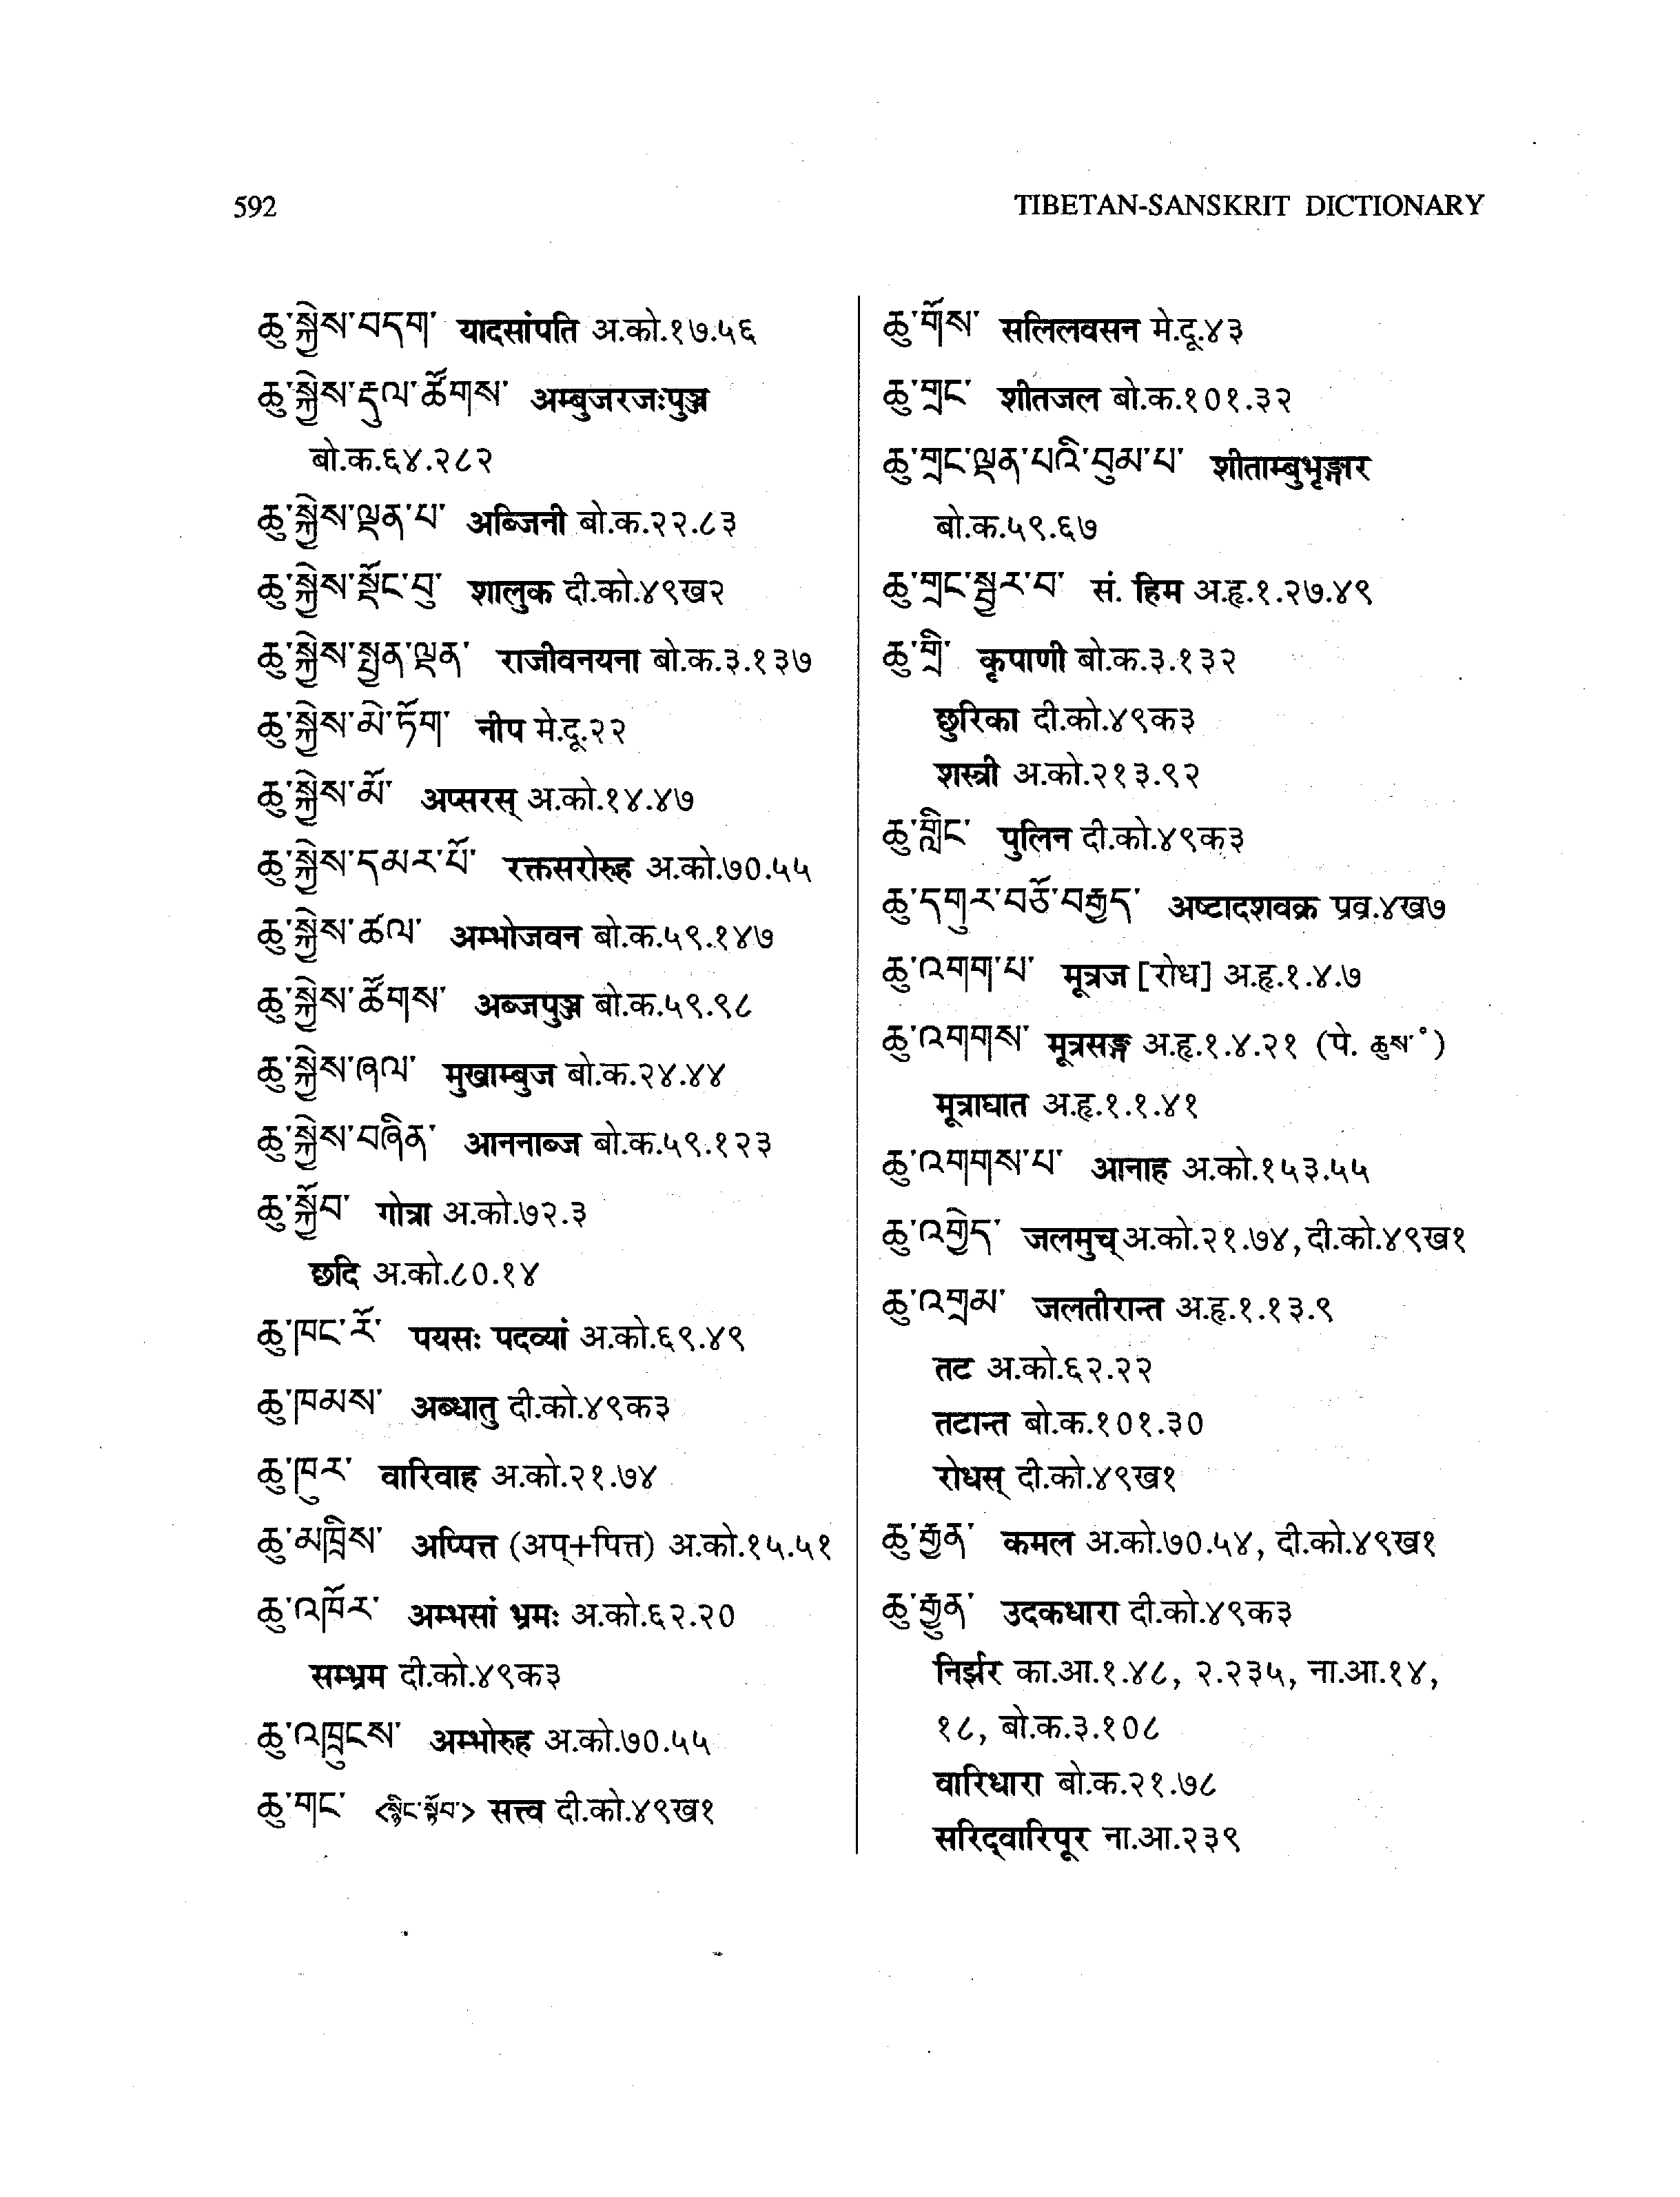 592
TIBETAN-SANSKRIT DICTIONARY
ཆུ་སྐྱེས་བདག་ यादसांपति अ.को.१७.५६
ཆུ་སྐྱེས་རྡུལ་ཚོགས་ अम्बुजरजःपुञ्ज
बो.क.६४.२८२
ཆུ་སྐྱེས་ལྡན་པ་ अब्जिनी बो.क.२२.८३
ཆུ་སྐྱེས་སྡོང་བུ་ शालुक दी.को.४९ख२
ཆུ་སྐྱེས་སྤྱན་ལྡན་ राजीवनयना बो.क.३.१३७
ཆུ་སྐྱེས་མེ་ཏོག་ नीप मे.दू.२२
ཆུ་སྐྱེས་མོ་ अप्सरस् अ.को.१४.४७
ཆུ་སྐྱེས་དམར་པོ་ रक्तसरोरुह अ.को.७०.५५
ཆུ་སྐྱེས་ཚལ་ अम्भोजवन बो.क.५९.१४७
ཆུ་སྐྱེས་ཚོགས་ अब्जपुञ्ज बो.क.५९.९८
ཆུ་སྐྱེས་ཞལ་ मुखाम्बुज बो.क.२४.४४
ཆུ་སྐྱེས་བཞིན་ आननाब्ज बो.क.५९.१२३
ཆུ་སྐྱོབ་ गोत्रा अ.को.७२.३
छदि अ.को.८०.१४
ཆུ་ཁང་རོ་ पयसः पदव्यां अ.को.६९.४९
ཆུ་ཁམས་ अब्धातु दी.को.४९क३
ཆུ་ཁུར་ वारिवाह अ.को.२१.७४
ཆུ་མཁྲིས་ अप्पित्त (अप्+पित्त) अ.को.१५.५१
ཆུ་འཁོར་ अम्भसां भ्रमः अ.को.६२.२०
सम्भ्रम दी.को.४९क३
ཆུ་འཁྲུངས་ अम्भोरुह अ.को.७०.५५
ཆུ་གང་ <སྙིང་སྟོབ་> सत्त्व दी.को.४९ख१
ཆུ་གོས་ सलिलवसन मे.दू.४३
ཆུ་གྲང་ शीतजल बो.क.१०१.३२
ཆུ་གྲང་ལྡན་པའི་བུམ་པ་ शीताम्बुभृङ्गार
बो.क.५९.६७
ཆུ་གྲང་སྦྱར་བ་ सं. हिम अ.हृ.१.२७.४९
ཆུ་གྲི་ कृपाणी बो.क.३.१३२
छुरिका दी.को.४९क३
शस्त्री अ.को.२१३.९२
ཆུ་གླིང་ पुलिन दी.को.४९क३
ཆུ་དགུར་བཅོ་བརྒྱད་ अष्टादशवक्र प्रव्र.४ख७
ཆུ་འགག་པ་ मूत्रज [रोध] अ.हृ.१.४.७
ཆུ་འགགས་ मूत्रसङ्ग अ.हृ.१.४.२१ (पे. ཆུས་°)
मूत्राघात अ.हृ.१.१.४१
ཆུ་འགགས་པ་ आनाह अ.को.१५३.५५
ཆུ་འགྱེད་ जलमुच् अ.को.२१.७४, दी.को.४९ख१
ཆུ་འགྲམ་ जलतीरान्त अ.हृ.१.१३.९
तट अ.को.६२.२२
तटान्त बो.क.१०१.३०
रोधस् दी.को.४९ख१
ཆུ་རྒྱན་ कमल अ.को.७०.५४, दी.को.४९ख१
ཆུ་རྒྱུན་ उदकधारा दी.को.४९क३
निर्झर का.आ.१.४८, २.२३५, ना.आ.१४,
१८, बो.क.३.१०८
वारिधारा बो.क.२१.७८
सरिद्वारिपूर ना.आ.२३९